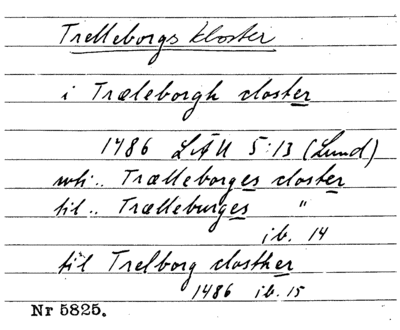 Trelleborgs kloster
i Træleborgh closter
1486 LÄU 5:13 (Lund)
uti.. Trælleborges closter
til.. Trælleburges "
ib. 14
til Trelborg closther
1486 ib. 15
Nr 5825.